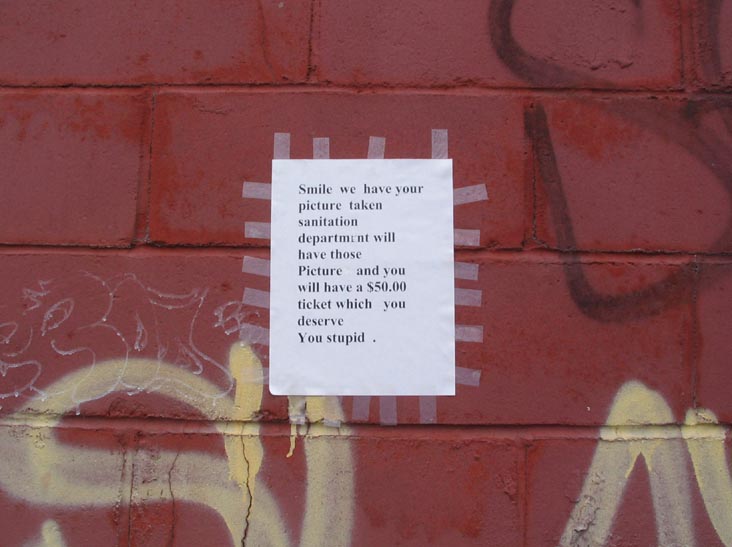 Smile we have your
picture taken
sanitation
departmnt will
have those
Picture and you
will have a $50.00
ticket which you
deserve
You stupid .